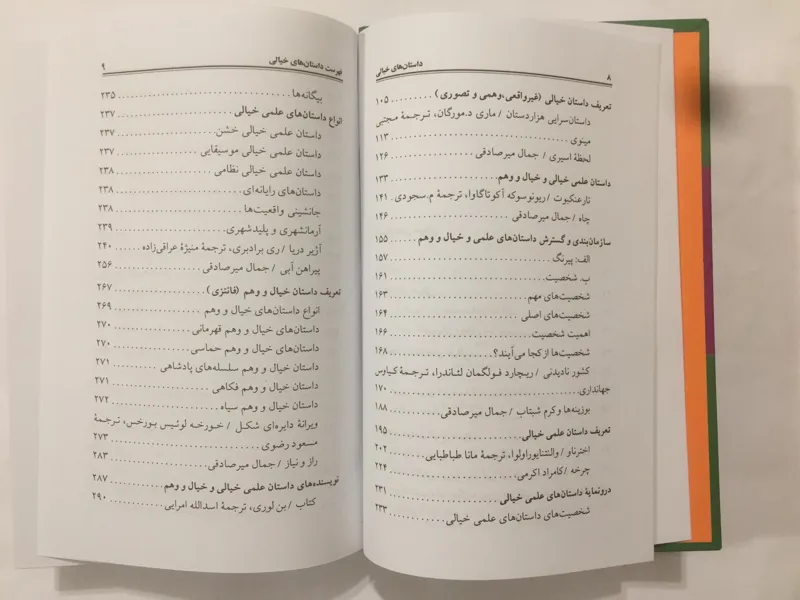 ۸ داستان‌های خیالی
تعریف داستان خیالی (غیرواقعی،وهمی و تصوری) .......... ۱۰۵
داستان‌سرایی هزاردستان / ماری د.مورگان، ترجمهٔ مجتبی
مینوی .......... ۱۱۳
لحظهٔ اسیری / جمال میرصادقی .......... ۱۲۶
داستان علمی خیالی و خیال و وهم .......... ۱۳۳
تارعنکبوت / ریونوسوکه آکوتاگاوا، ترجمهٔ م.سجودی .......... ۱۴۱
چاه / جمال میرصادقی .......... ۱۴۶
سازمان‌بندی و گسترش داستان‌های علمی و خیال و وهم .......... ۱۵۵
الف: پیرنگ .......... ۱۵۷
ب. شخصیت .......... ۱۶۱
شخصیت‌های مهم .......... ۱۶۳
شخصیت‌های اصلی .......... ۱۶۴
اهمیت شخصیت .......... ۱۶۶
شخصیت‌ها از کجا می‌آیند؟ .......... ۱۶۸
کشور نادیدنی / ریچارد فولگمان لئاندرا، ترجمهٔ کیاوس
جهانداری .......... ۱۷۰
بوزینه‌ها و کرم شبتاب / جمال میرصادقی .......... ۱۸۸
تعریف داستان علمی خیالی .......... ۱۹۵
اخترناو / والنتنایوراولوا، ترجمهٔ مانا طباطبایی .......... ۲۰۲
چرخه / کامراد اکرمی .......... ۲۲۴
درونمایهٔ داستان‌های علمی خیالی .......... ۲۳۱
شخصیت‌های داستان‌های علمی خیالی .......... ۲۳۳
فهرست داستان‌های خیالی ۹
بیگانه‌ها .......... ۲۳۵
انواع داستان‌های علمی خیالی .......... ۲۳۷
داستان علمی خیالی خشن .......... ۲۳۷
داستان علمی خیالی موسیقایی .......... ۲۳۷
داستان علمی خیالی نظامی .......... ۲۳۸
داستان‌های رایانه‌ای .......... ۲۳۸
جانشینی واقعیت‌ها .......... ۲۳۸
آرمانشهری و پلیدشهری .......... ۲۳۹
آژیر دریا / ری برادبری، ترجمهٔ منیژهٔ عراقی‌زاده .......... ۲۴۰
پیراهن آبی / جمال میرصادقی .......... ۲۵۶
تعریف داستان خیال و وهم (فانتزی) .......... ۲۶۷
انواع داستان‌های خیال و وهم .......... ۲۶۹
داستان‌های خیال و وهم قهرمانی .......... ۲۷۰
داستان‌های خیال و وهم حماسی .......... ۲۷۰
داستان‌های خیال و وهم سلسله‌های پادشاهی .......... ۲۷۱
داستان‌های خیال و وهم فکاهی .......... ۲۷۱
داستان‌های خیال و وهم سیاه .......... ۲۷۲
ویرانهٔ دایره‌ای شکل / خورخه لوئیس بورخس، ترجمهٔ
مسعود رضوی .......... ۲۷۳
راز و نیاز / جمال میرصادقی .......... ۲۸۳
نویسنده‌های داستان علمی خیالی و خیال و وهم .......... ۲۸۷
کتاب / بن لوری، ترجمهٔ اسدالله امرایی .......... ۲۹۰